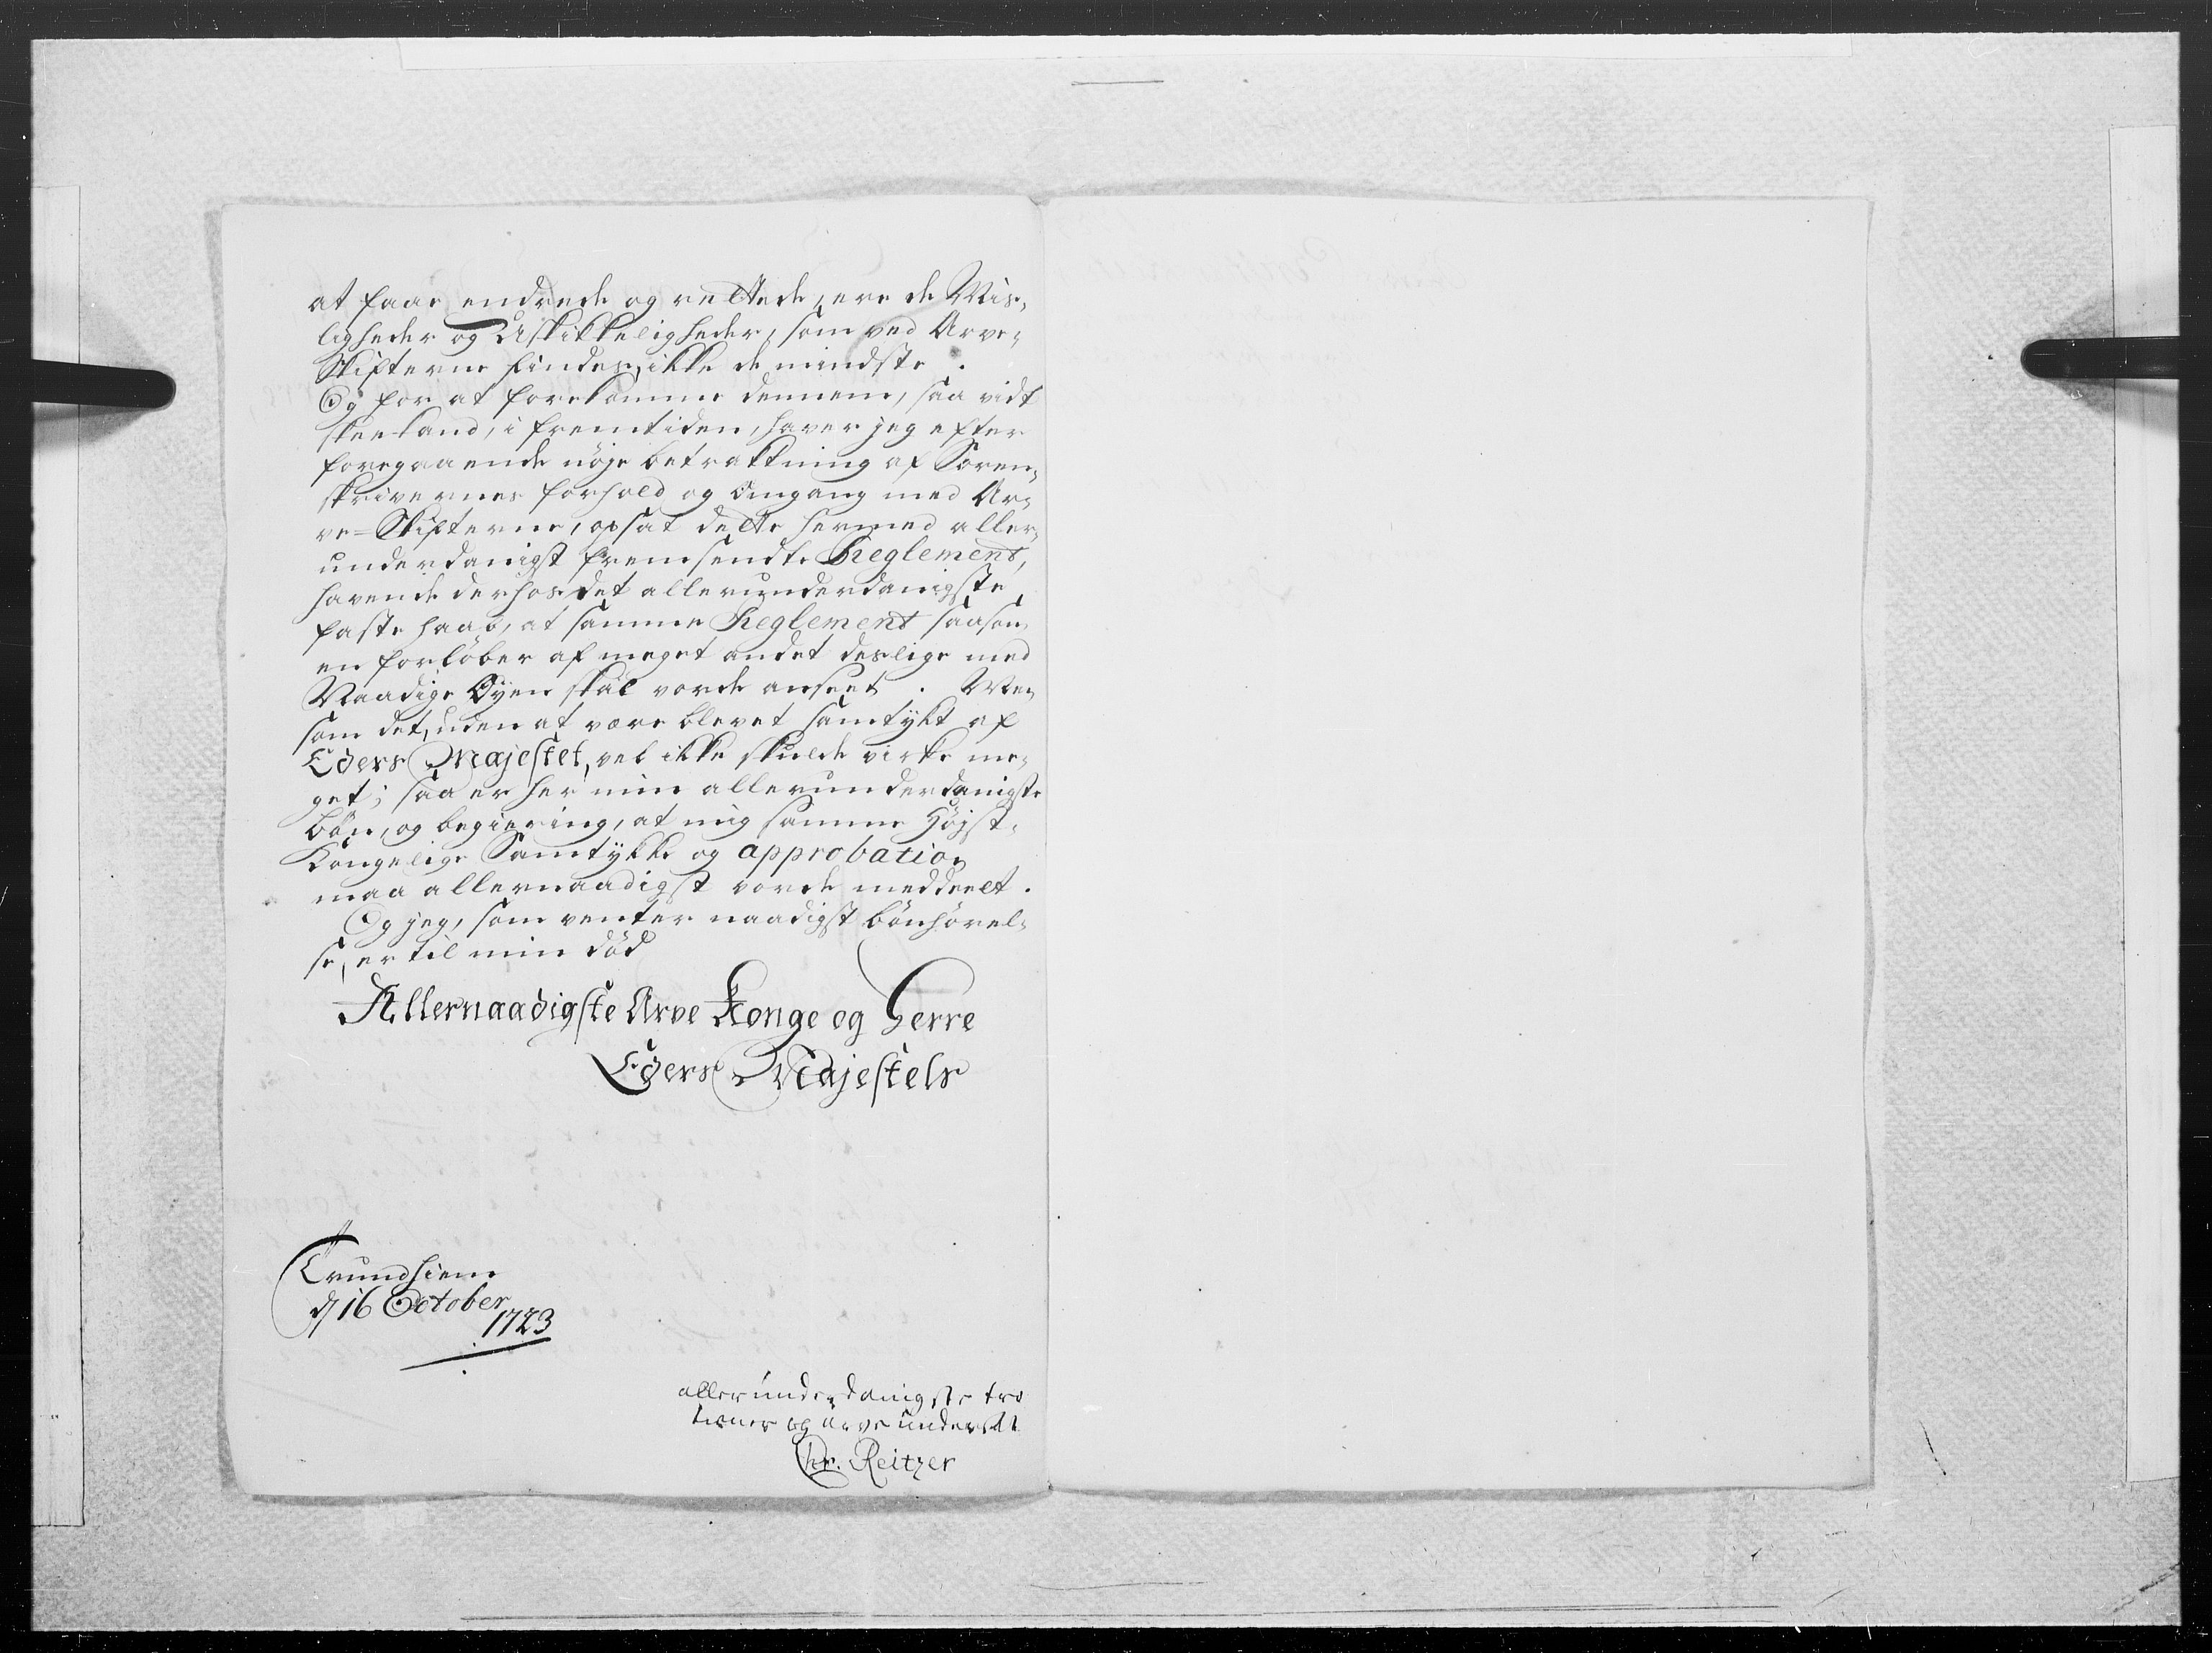 at faae endrede og rettede, ere de Mis-
ligheder og Uskikkeligheder, som ved Arve-
Skifterne findes, ikke de mindste.
Og for at forekomme dennem, saa vidt
skee kand, i fremtiden, haver jeg efter
foregaaende nøje betragtning af Soren-
skrivernes forhold og Omgang med Ar-
ve-Skifterne, opsat dette hermed aller-
underdanigst fremsendte Reglement,
havende derhos det allerunderdanigste
faste haab, at samme Reglement saasom
en forløber af meget andet deslige med
Naadige Øyen skal vorde anseet. Men
som det, uden at være blevet samtykt af
Eders Majestet, vel ikke skulde virke me-
get; saa er her min allerunderdanigste
bøn, og begiering, at mig samme Høyst-
Kongelige Samtykke og approbation
maa allernaadigst vorde meddeelt.
Og jeg, som venter naadigst bønhørel-
se, er til min død
Allernaadigste Arve Konge og Herre
Eders Majestets
Trundhiem
d 16 October
1723
allerunderdanigste tro
tiener og arve undersaat
Chr. Reitzer